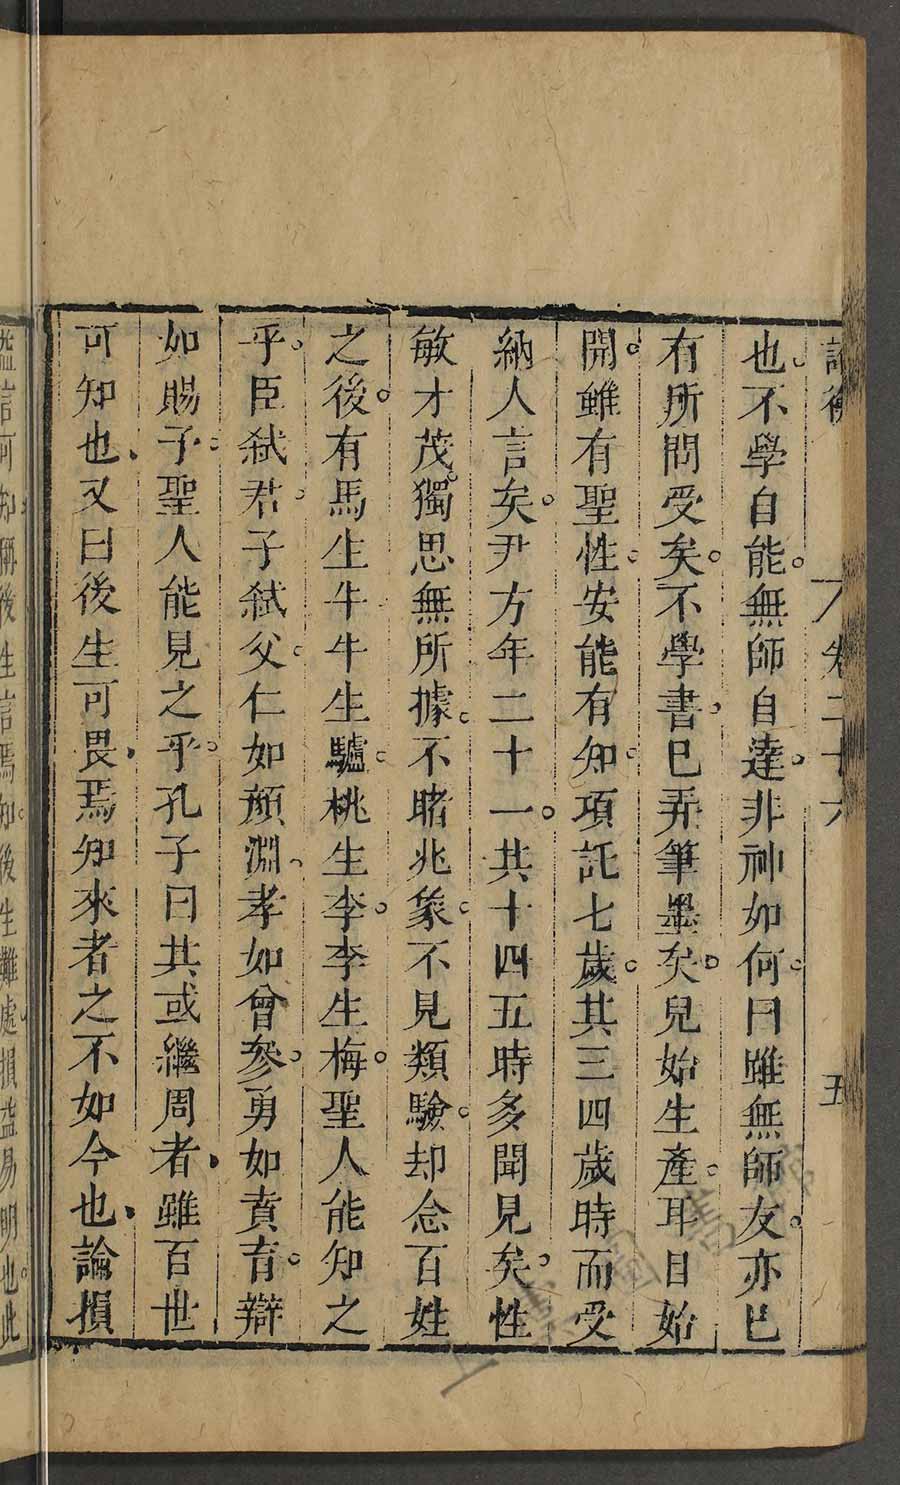 論衡 卷二十六 五
也不學自能無師自達非神如何曰雖無師友亦已
有所問受矣不學書已弄筆墨矣兒始生產耳目始
開雖有聖性安能有知項託七歲其三四歲時而受
納人言矣尹方年二十一其十四五時多聞見矣性
敏才茂獨思無所據不睹兆象不見類驗却念百姓
之後有馬生牛牛生驢桃生李李生梅聖人能知之
乎臣弑君子弑父仁如顏淵孝如曾參勇如賁育辯
如賜子聖人能見之乎孔子曰其或繼周者雖百世
可知也又曰後生可畏焉知來者之不如今也論損
言可知稱後生言焉知後生難處損益易明也此